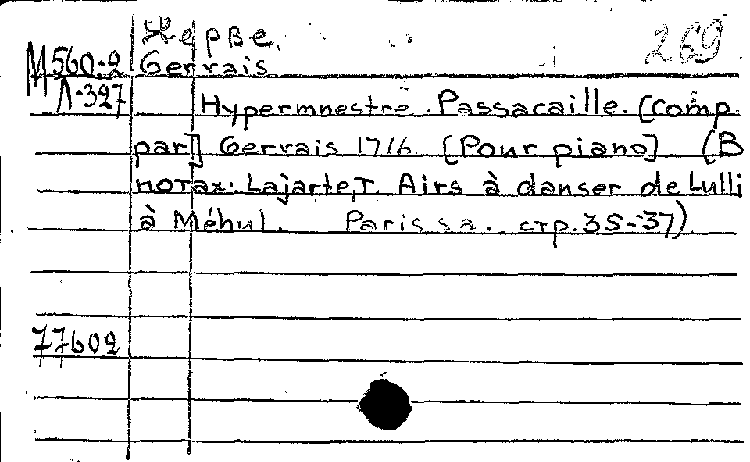 Жерве.
269
М560-2 Gervais
Л-327
Hypermnestre. Passacaille. [Comp.
par] Gervais 1716. [Pour piano] (В
нотах: Lajarte, T. Airs à danser de Lulli
à Méhul. Paris s.a. стр. 35-37).
77602